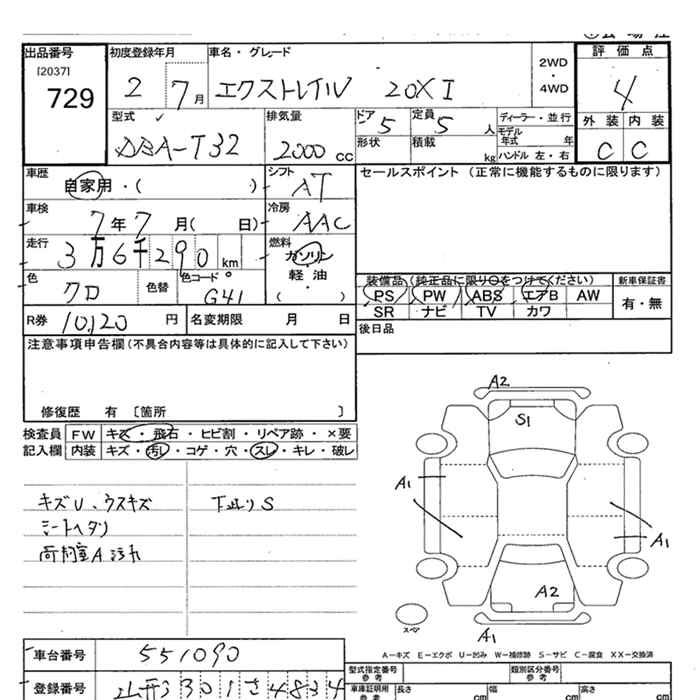 出品番号
[2037]
729
初度登録年月
2 7月
車名・グレード
エクストレイル 20X I
2WD
・
4WD
評価点
4
型式
DBA-T32
排気量
2000 cc
ドア
5
定員
5 人
形状
積載
kg
ディーラー・並行
モデル年式 年
ハンドル 左・右
外装 内装
C C
車歴
自家用・( )
シフト
AT
セールスポイント (正常に機能するものに限ります)
車検
7年7月( 日)
冷房
AAC
走行
3万6千290 km
燃料
ガソリン
軽油
( ・ )
色
クロ
色替
色コード
G41
装備品(純正品に限り○をつけてください)
新車保証書
PS PW ABS エアB AW
SR ナビ TV カワ
有・無
R券 10,120 円
名変期限 月 日
後日品
注意事項申告欄(不具合内容等は具体的に記入して下さい)
修復歴 有 [箇所 ]
検査員 FW キズ・飛石・ヒビ割・リペア跡・×要
記入欄 内装 キズ・汚レ・コゲ・穴・スレ・キレ・破レ
キズU、ウスキズ
シートヘタリ
荷物室A 汚れ
下廻りS
A2
S1
A1
A1
A2
A1
スペア
A-キズ E-エクボ U-凹み W-補修跡 S-サビ C-腐食 XX-交換済
車台番号 551090
型式指定番号
類別区分番号
登録番号
301 さ 4834
車庫証明用参考
長さ cm
幅 cm
高さ cm